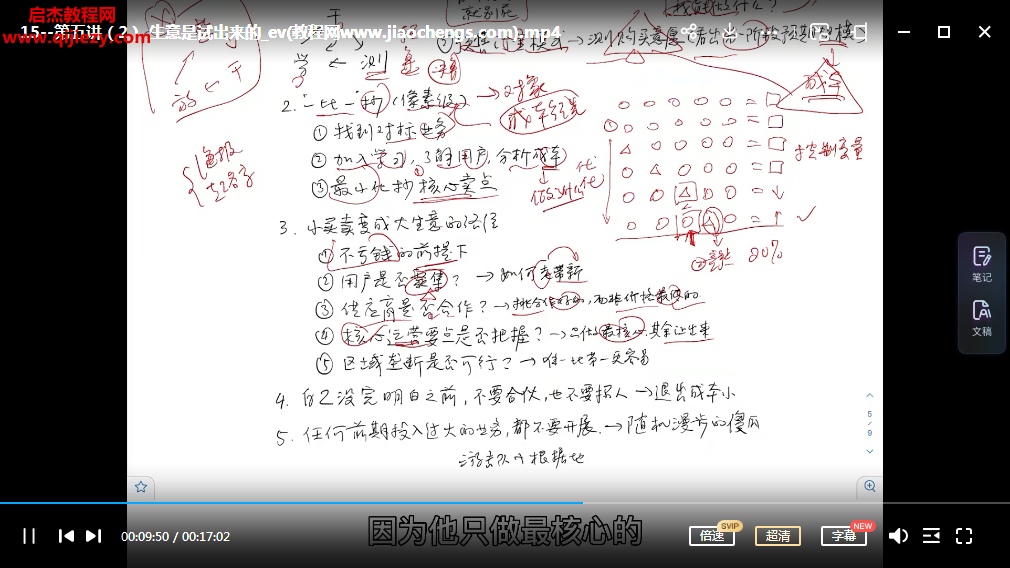 启杰教程网
www.qijiezy.com
15--第五讲（2）生意是试出来的_ev(教程网www.jiaochengs.com).mp4
学 ← 测
2. "一比一"抄(像素级)
① 找到对标业务
② 加入学习，了解用户，分析成本
③ 最小化抄核心卖点
控制变量
20%
3. 小买卖变成大生意的路径
① 不亏钱的前提下
② 用户是否聚集？→ 如何老带新
③ 供应商是否合作？→ 挑合作好的，而非价格最低的
④ 核心运营要点是否把握？→ 只做最核心，其余让出来
⑤ 区域垄断是否可行？→ 唯一比第一更容易
4. 自己没完明白之前，不要合伙，也不要招人 → 退出成本小
5. 任何前期投入过大的业务，都不要开展 → 随机漫步的傻瓜
游击队 根据地
笔记
文稿
5
/
9
因为他只做最核心的
00:09:50 / 00:17:02
倍速
SVIP
超清
字幕
NEW